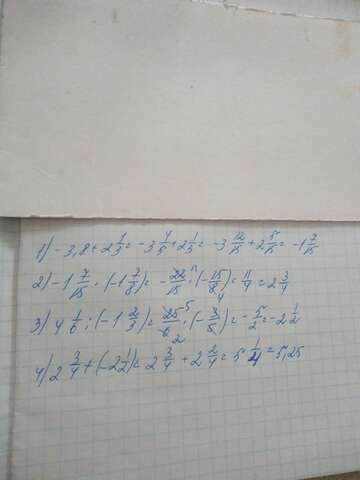 1) -3,8 + 2 1/3 = -3 4/5 + 2 1/3 = -3 12/15 + 2 5/15 = -1 7/15
2) -1 7/15 · (-1 7/8) = -22/15 · (-15/8) = 11/4 = 2 3/4
3) 4 1/6 : (-1 2/3) = 25/6 · (-3/5) = -5/2 = -2 1/2
4) 2 3/4 + (-2 1/2) = 2 3/4 + 2 2/4 = 5 1/4 = 5,25